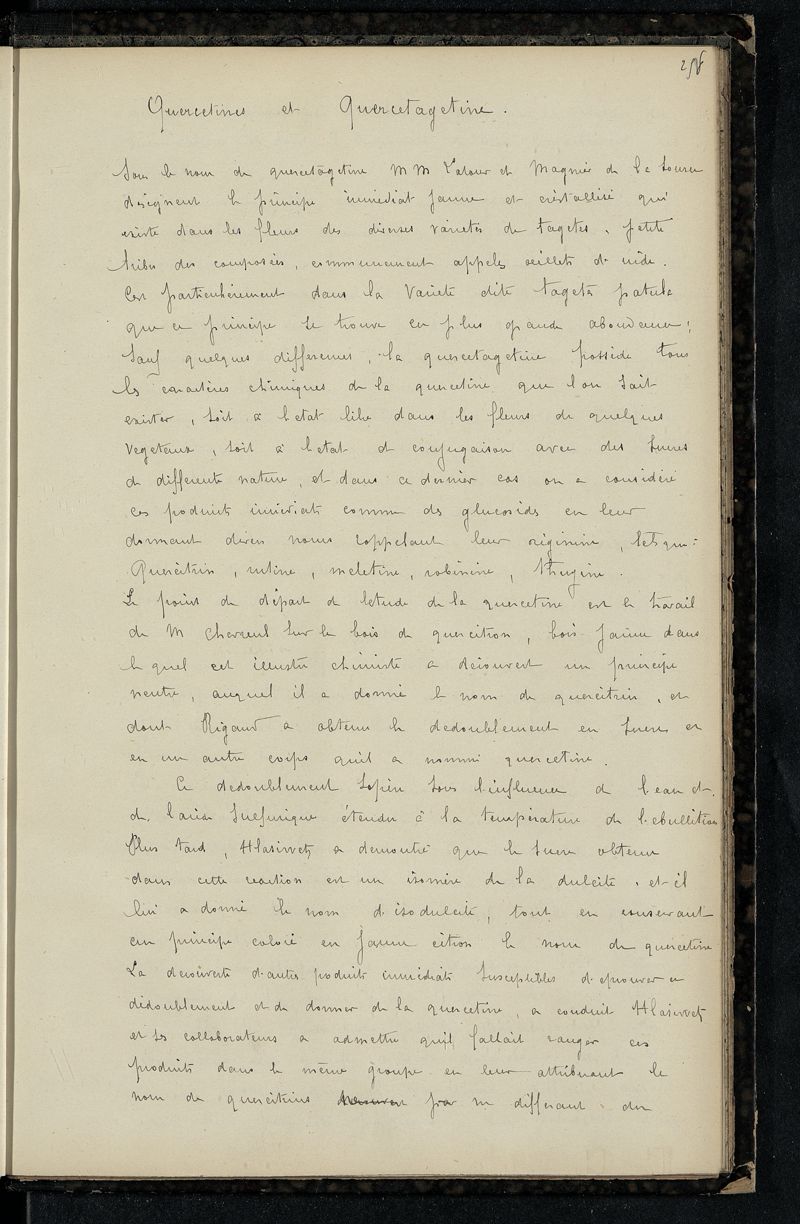 Quercetines et Quercetagetine.
Sous le nom de quercetagetine MM Latour et Magnier de la Source
designent le principe immediat jaune et cristallisé qui
existe dans les fleurs des diverses varietés de tagetes, petite
tribu des composées, communement appelés oeillets d'inde.
C'est particulièrement dans la Varieté dite tagetes patula
que ce principe se trouve en plus grande abondance;
Sauf quelques differences, la quercetagetine possède tous
les caractères chimiques de la quercetine que l'on sait
exister, soit à l'etat libre dans les fleurs de quelques
vegetaux, soit à l'etat de conjugaison avec des sucres
de differente nature, et dans ce dernier cas on a considéré
ces produits immediats comme des glucosides en leur
donnant divers noms rappelant leur origine, tels que:
Quercitrin, rutine, meletine, robinine, thugine.
Le point de départ de l'etude de la quercetine est le travail
de M Chevreul sur le bois de quercitron, bois jaune dans
lequel cet illustre chimiste a decouvert un principe
neutre, auquel il a donné le nom de quercitrin, et
dont Rigaud a obtenu le dedoublement en sucre et
en un autre corps qu'il a nommé quercetine.
Ce dedoublement s'opère sous l'influence de l'eau et
de l'acide sulfurique étendu à la température de l'ebullition
Plus tard, Hlasiwetz a demontré que le sucre obtenu
dans cette reaction est un isomère de la dulcite, et il
lui a donné le nom d'isodulcite, tout en conservant
au principe coloré en jaune citron le nom de quercetine
La decouverte d'autres produits immediats susceptibles d'eprouver ce
dédoublement et de donner de la quercetine, a conduit Hlasiwetz
et ses collaborateurs a admettre qu'il fallait ranger ces
produits dans le même groupe en leur attribuant le
nom de quercitrins par ne differant